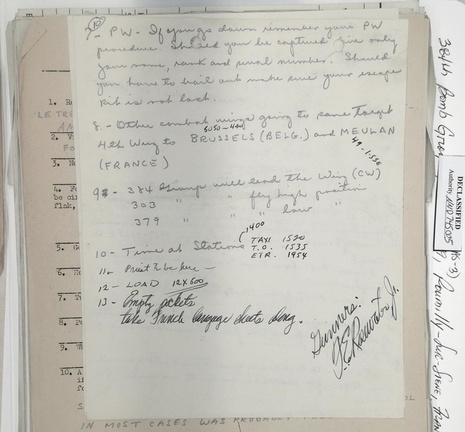 7- PW- If you go down remember your PW
procedure. Should you be captured give only
your name, rank and serial number. Should
you have to bail out make sure your escape
kit is not lost.
8- Other combat wings going to same target
4th Wing to BRUSSELS (BELG.) and MEULAN
(FRANCE)
9- 384 Group will lead the Wing (CW)
303 " " fly high position
379 " " " low "
10- Time at Stations 1400
TAXI 1520
T.O. 1535
ETR. 1954
11- Priest to be here -
12- LOAD 12X500
13- Empty pockets
take French language sheets along.
Gunners:
384th Bomb Group
DECLASSIFIED
Authority
IN MOST CASES WAS PROBABLY